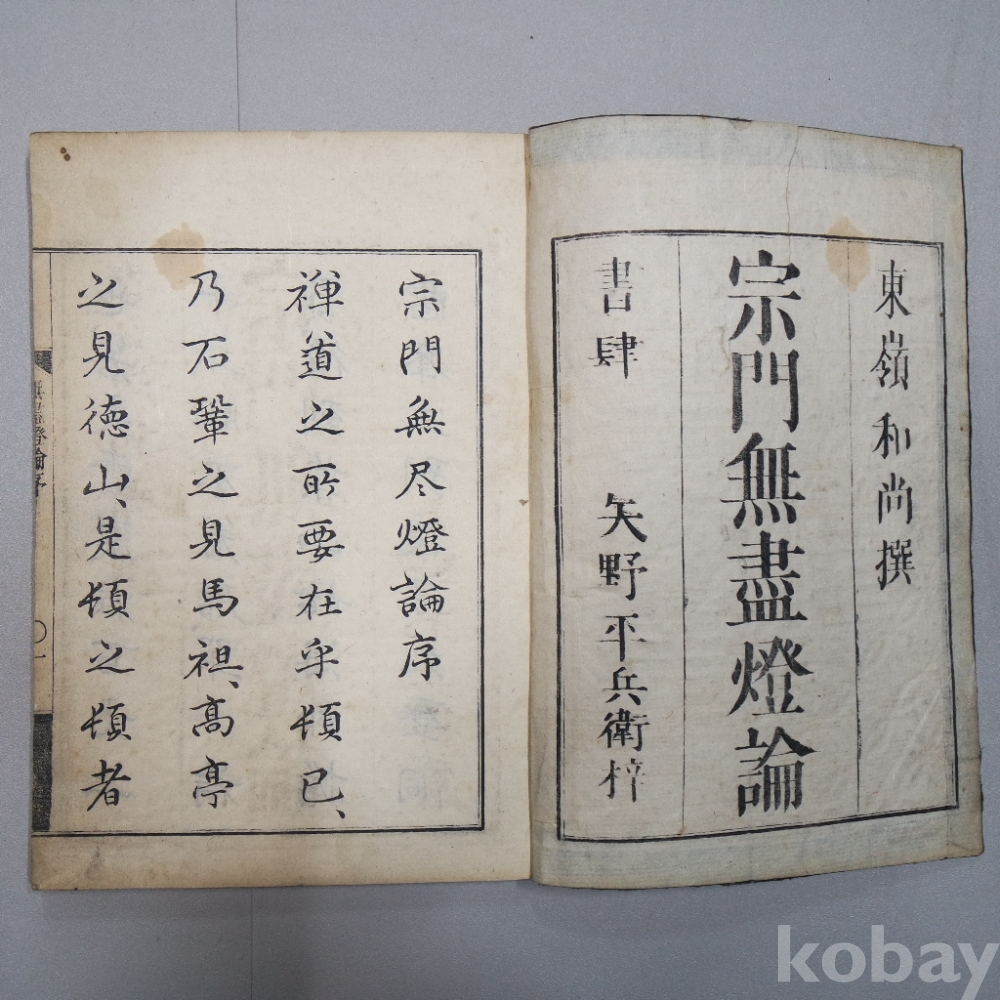 東嶺和尚撰
宗門無盡燈論
書肆 矢野平兵衛梓
宗門無尽燈論序
禅道之所要在乎頓已、
乃石鞏之見馬祖、高亭
之見徳山、是頓之頓者
無盡燈論序 〇一
kobay